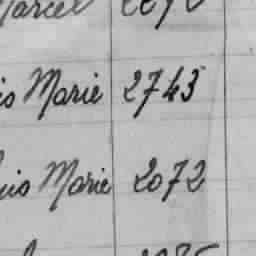 Marcel
is Marie 2743
uis Marie 2072